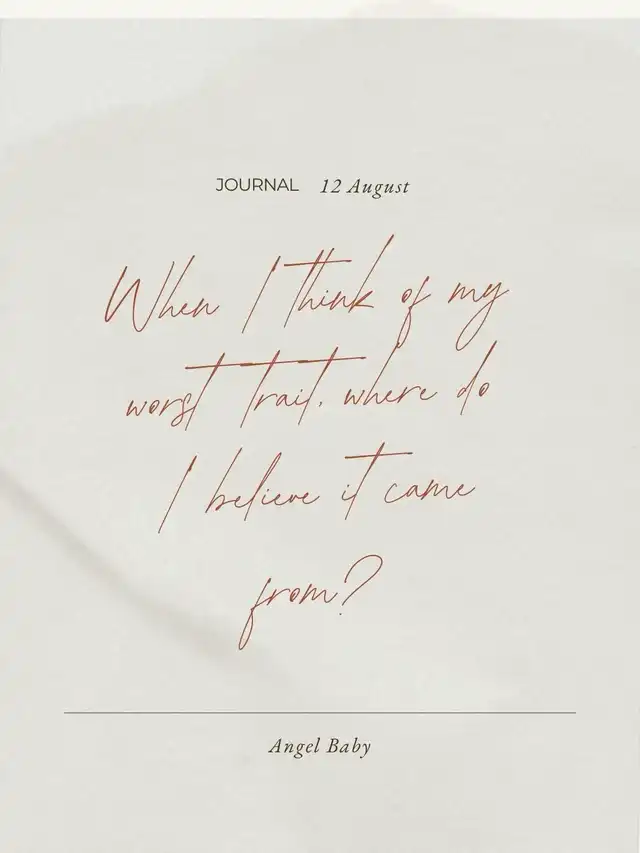 JOURNAL 12 August
When I think of my
worst trait, where do
I believe it came
from?
Angel Baby